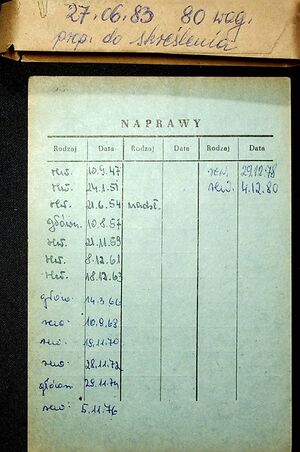 27.06.83 80 wag.
prop. do skreślenia
NAPRAWY
Rodzaj Data Rodzaj Data Rodzaj Data
rew. 10.9.47 rew. 29.12.78
rew. 24.1.51 rew. 4.12.80
rew. 21.6.54 nadzł.
główn. 10.8.57
rew. 21.11.59
rew. 8.12.61
rew. 18.12.63
głów. 14.3.66
rew. 10.9.68
rew. 19.11.70
rew. 28.11.72
główn 29.11.74
rew. 5.11.76